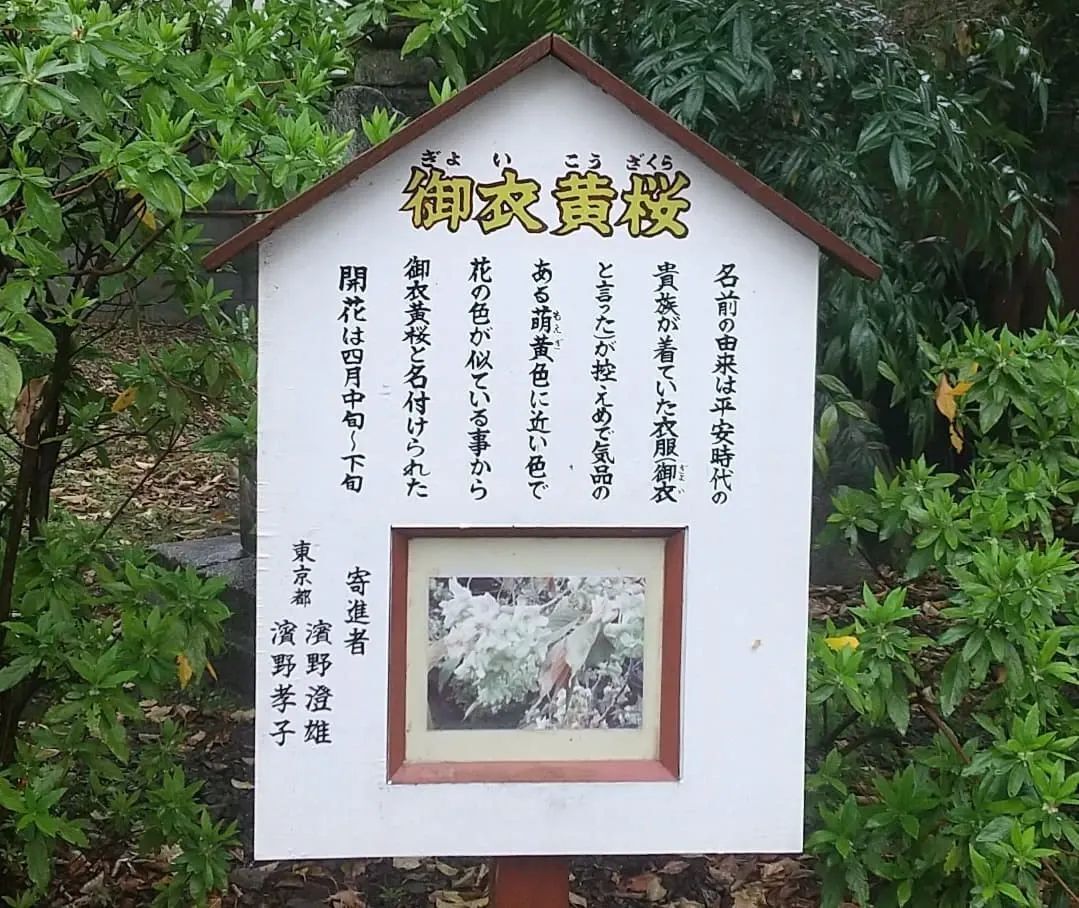 ぎょいこうざくら
御衣黄桜
名前の由来は平安時代の
貴族が着ていた衣服(御衣
ぎょい
と言った)が控えめで気品の
ある萌黄色に近い色で
もえぎ
花の色が似ている事から
御衣黄桜と名付けられた
開花は四月中旬～下旬
寄進者
東京都 濱野澄雄
濱野孝子